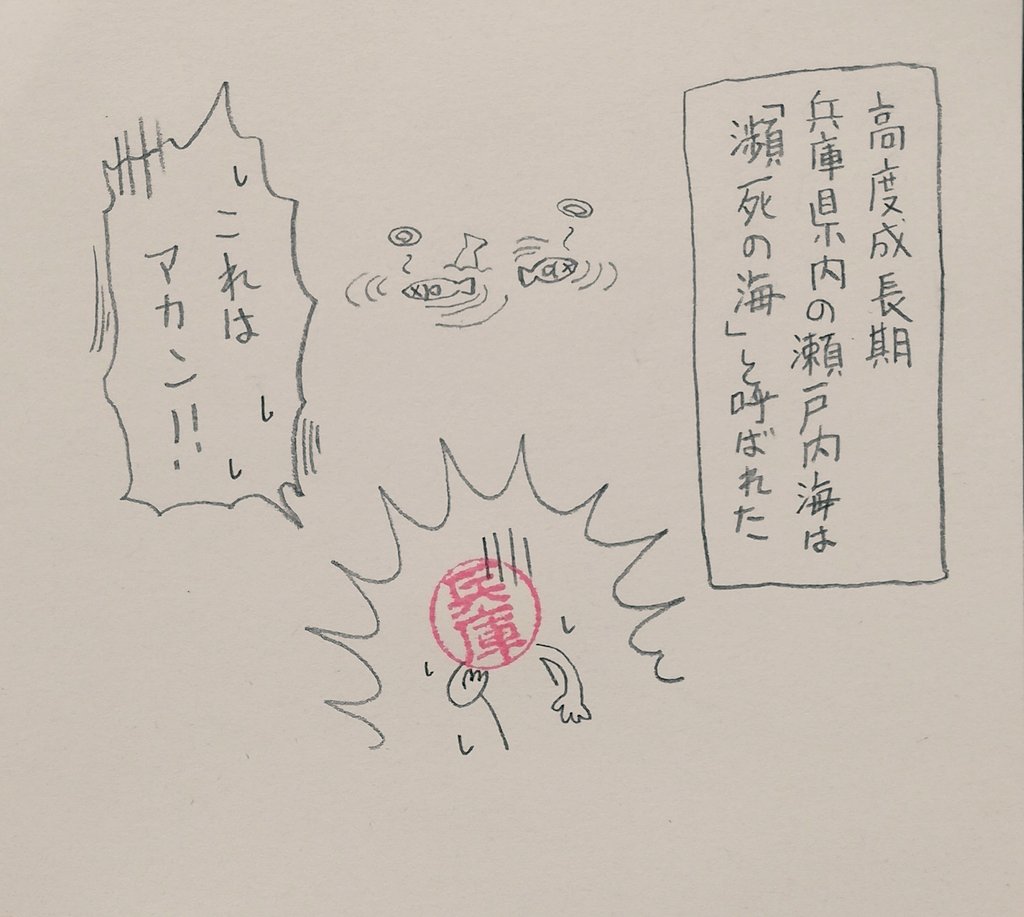 高度成長期
兵庫県内の瀬戸内海は
「瀕死の海」と呼ばれた
これは
アカン!!
兵庫